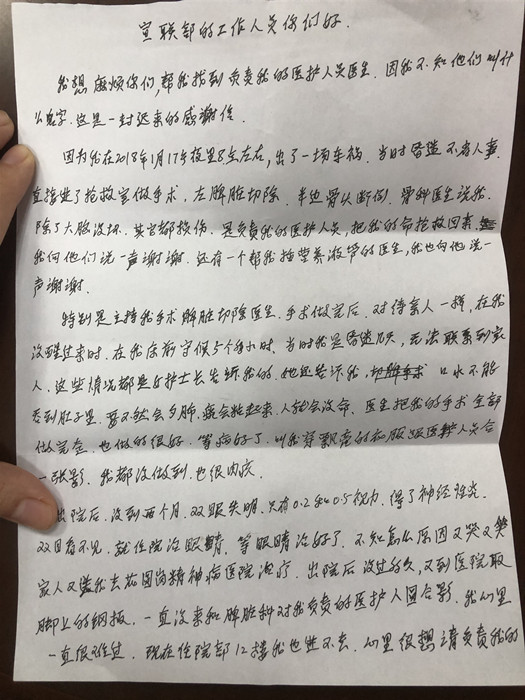 宣联部的工作人员你们好.
我想麻烦你们,帮我找到负责我的医护人员医生.因我不知他们叫什
么名字.这是一封迟来的感谢信.
因为我在2018年1月17号夜里8点左右,出了一场车祸.当时昏迷不省人事.
直接进了抢救室做手术.左脾脏切除.半边骨头断倒.骨科医生说我.
除了大脑没坏.其它都损伤.是负责我的医护人员,把我的命抢救回来.
我向他们说一声谢谢.还有一个帮我插营养液管的医生,我也向他说一
声谢谢.
特别是主持我手术脾脏切除医生.手术做完后.对待亲人一样,在我
没醒过来时.在我床前守候5个多小时.当时我是昏迷几天,无法联系到家
人.这些情况都是护士长告诉我的.她还告诉我. 口水不能
吞到肚子里.要不然会歹肺.就会 起来.人就会没命.医生把我的手术全部
做完走.也做的很好.等病好了.叫我穿飘亮的衣服跟医护人员合
一张影.我都没做到.也很内疚.
出院后.没到两个月.双眼失明.只有0.2和0.5视力.得了神经 炎.
双目看不见.就住院治眼睛.等眼睛治好了.不知怎么原因又哭又笑
家人又送我去花园岗精神病医院治疗.出院后没过多久.又到医院取
脚上的钢板.一直没来和脾脏科对我负责的医护人员合影.我心里
一直很难过.现在住院部12楼我也进不去.心里很想请负责我的